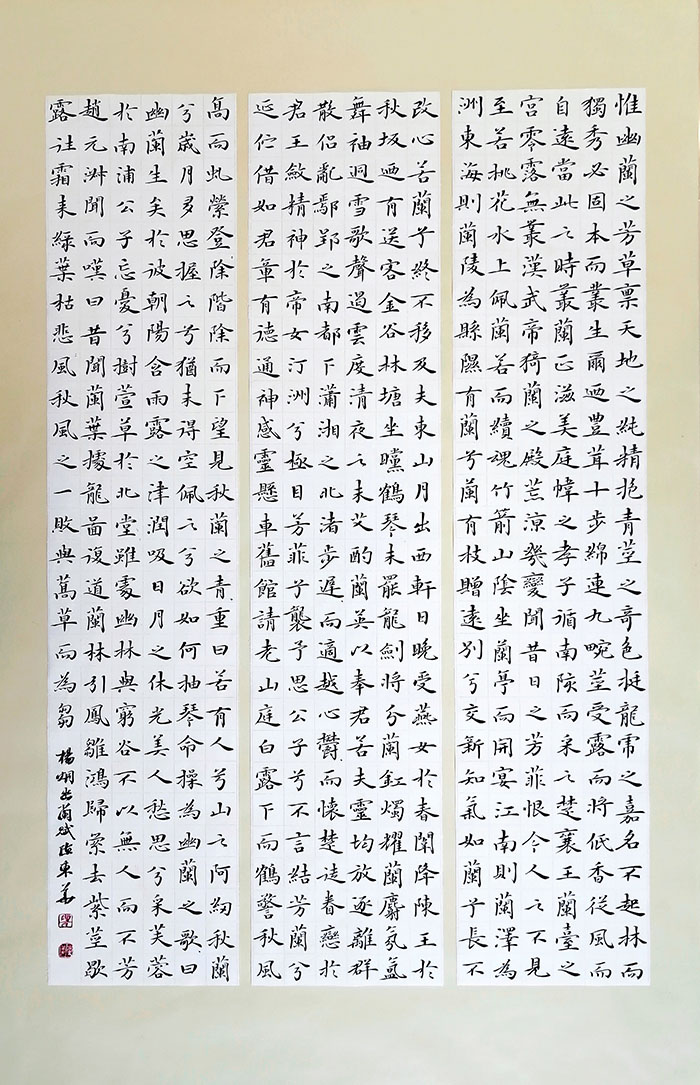 惟幽蘭之芳草稟天地之純精抱青莖之奇色挺龍常之嘉名不起林而
獨秀必固本而叢生爾迺豐茸十步綿連九畹莖受露而將低香從風而
自遠當此之時叢蘭正滋美庭幃之孝子循南陔而采之楚襄王蘭臺之
宮零露無叢漢武帝猗蘭之殿荒涼幾變聞昔日之芳菲恨今人之不見
至若桃花水上佩蘭若而續魂竹箭山陰坐蘭亭而開宴江南則蘭澤為
洲東海則蘭陵為縣隰有蘭兮蘭有枝贈遠別兮交新知氣如蘭兮長不
改心若蘭兮終不移及夫東山月出西軒日晚受燕女於春閨降陳王於
秋坂迺有送客金谷林塘坐曛鶴琴未罷龍劍將分蘭釭燭耀蘭麝氛氳
舞袖迴雪歌聲遏雲度清夜之未艾酌蘭英以奉君若夫靈均放逐離群
散侶亂鄢郢之南都下瀟湘之北渚步遲而適越心鬱而懷楚徒眷戀於
君王斂精神於帝女汀洲兮極目芳菲兮襲予思公子兮不言結芳蘭兮
延佇借如君章有德通神感靈懸車舊館請老山庭白露下而鶴警秋風
高而登除階除而下望見秋蘭之青重曰若有人兮山之阿紉秋蘭
兮歲月多思握之兮猶未得空佩之兮欲如何抽琴命操為幽蘭之歌曰
幽蘭生矣於彼朝陽含雨露之津潤吸日月之休光美人愁思兮采芙蓉
於南浦公子忘憂兮樹萱草於北堂雖處幽林與窮谷不以無人而不芳
趙元淑聞而嘆曰昔聞蘭葉據龍圖復道蘭林引鳳雛鴻歸去紫莖歇
露往霜來綠葉枯悲風秋風之一敗與萬草而為芻
楊炯幽蘭賦